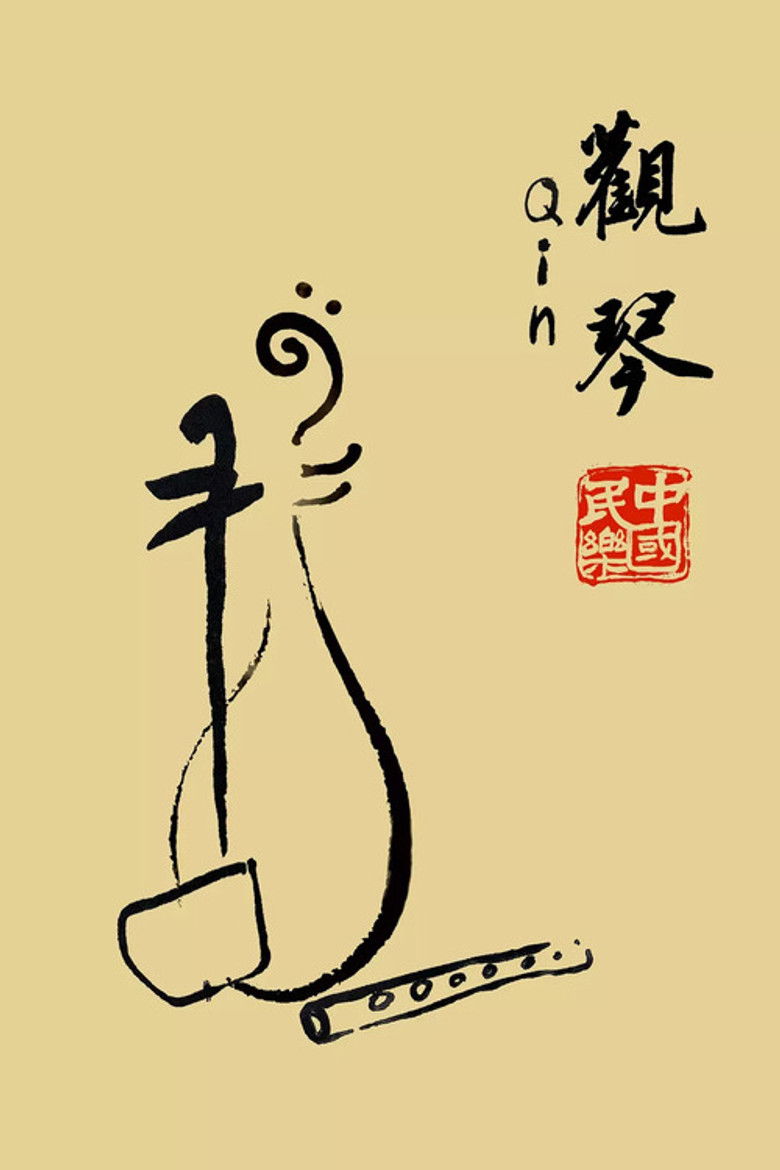 觀琴
Qin
中國民樂